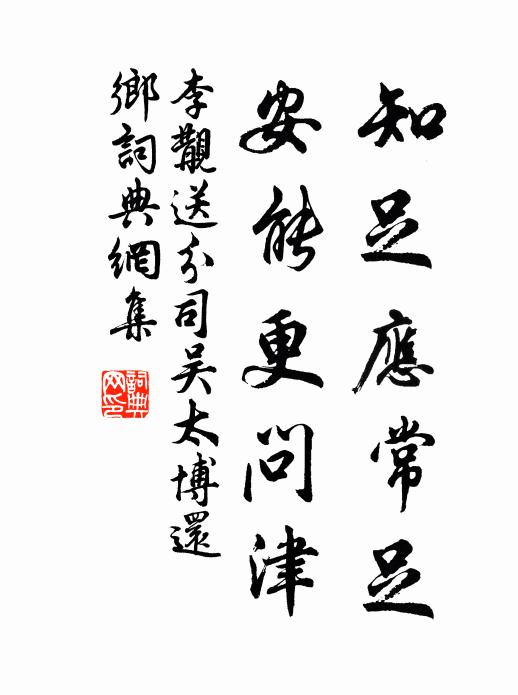 知足應常足
安能更問津
李觀送分司吴太博還
鄉詞典網集
詞典
网印